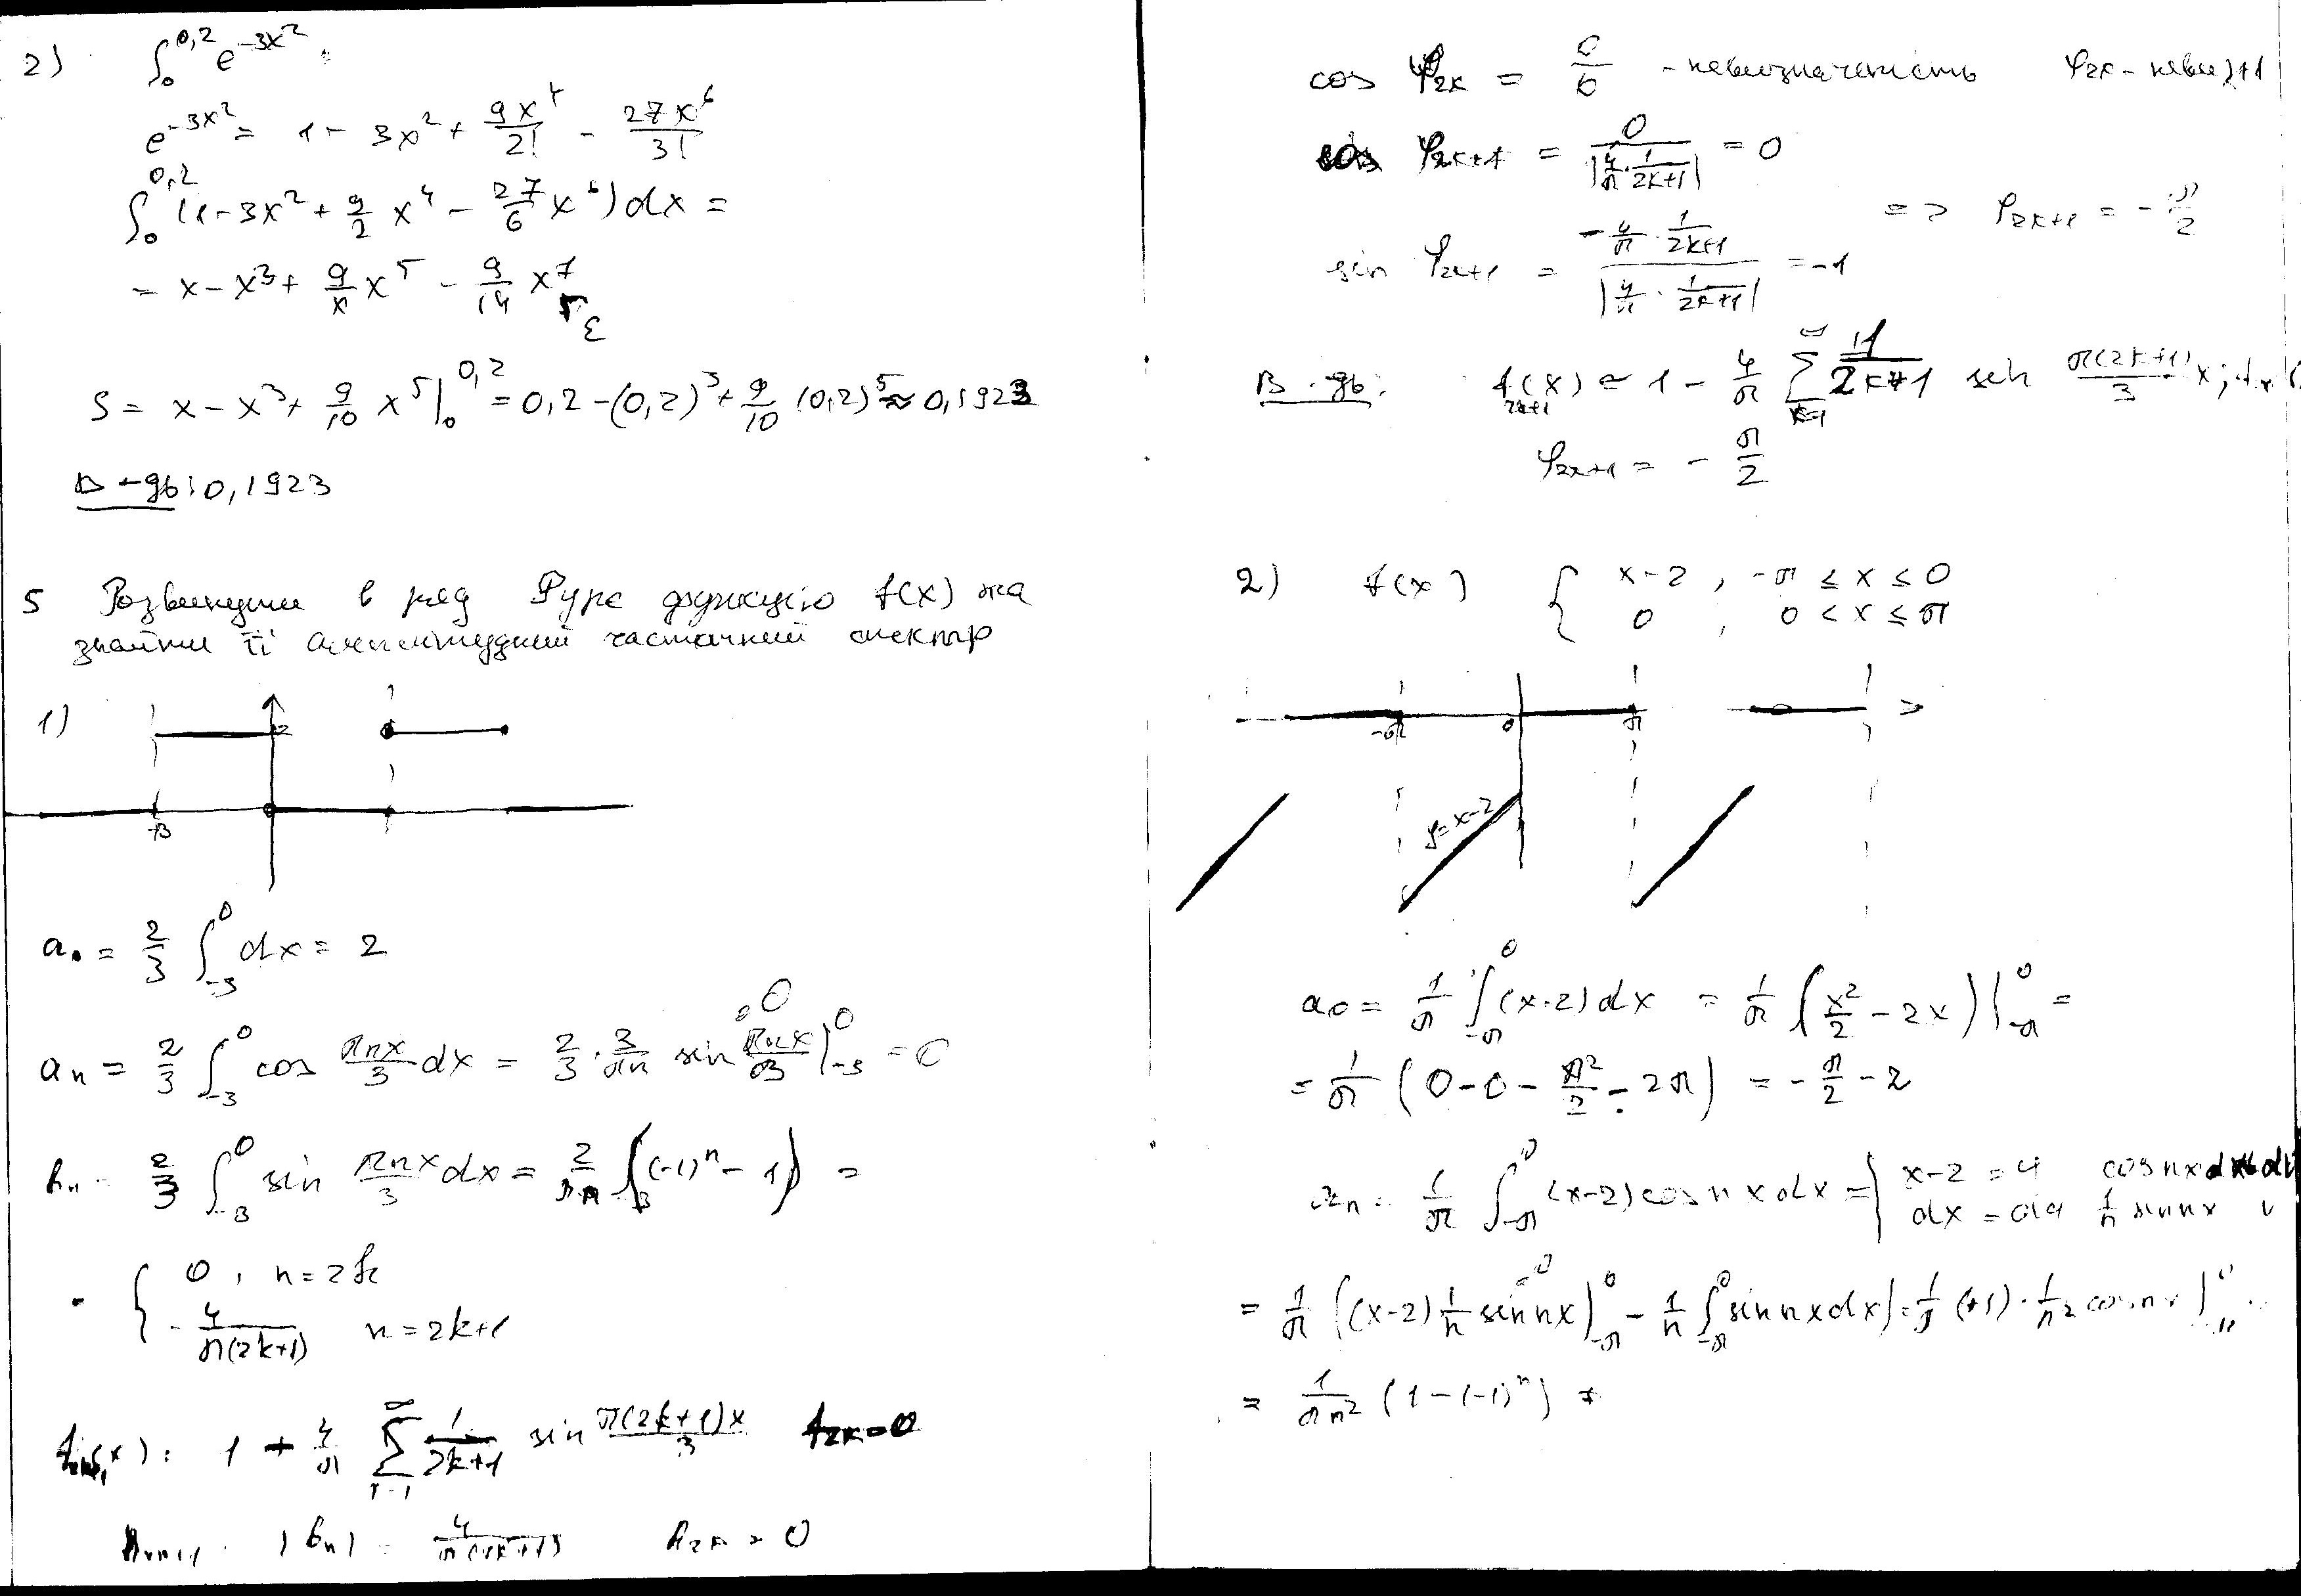 2) ∫₀^0,2 e^-3x²
e^-3x² = 1 - 3x² + 9x⁴/2! - 27x⁶/3!
∫₀^0,2 (1-3x² + 9/2 x⁴ - 27/6 x⁶)dx =
= x - x³ + 9/x x⁵ - 9/14 x⁷
ε
S = x - x³ + 9/10 x⁵|₀^0,2 = 0,2 - (0,2)³ + 9/10 (0,2)⁵ ≈ 0,1923
В-дь: 0,1923
5 Розвинути в ряд Фурє функцію f(x) та
знайти її амплітудний частотний спектр
1)
2
-3
a₀ = 2/3 ∫₋₃⁰ dx = 2
aₙ = 2/3 ∫₋₃⁰ cos πnx/3 dx = 2/3 · 3/πn sin πnx/3 |₋₃⁰ = 0
bₙ = 2/3 ∫₋₃⁰ sin πnx/3 dx = ((-1)ⁿ - 1) =
= { 0, n = 2k
-4/π(2k+1) n = 2k+1
1 + 4/π Σ 1/2k+1 sin π(2k+1)x/3 A₂ₖ=0
|bₙ| = A₂ₖ = 0
cos φ₂ₖ = 0/0 - невизначеність φ₂ₖ -
cos φ₂ₖ₊₁ = 0/|4/π · 1/2k+1| = 0
sin φ₂ₖ₊₁ = -4/π · 1/2k+1 / |4/π · 1/2k+1| = -1 => φ₂ₖ₊₁ = -π/2
В-дь: f(x) = 1 - 4/π Σ 1/2k+1 sin π(2k+1)/3 x;
φ₂ₖ₊₁ = - π/2
2) f(x) { x-2, -π ≤ x ≤ 0
0, 0 < x ≤ π
-π 0 π
y=x-2
a₀ = 1/π ∫₋π⁰ (x-2)dx = 1/π (x²/2 - 2x)|₋π⁰ =
= 1/π (0-0- π²/2 - 2π) = - π/2 - 2
aₙ = 1/π ∫₋π⁰ (x-2)cos nx dx = | x-2 = u cos nx dx = dv
dx = du 1/n sin nx v
= 1/π ((x-2) 1/n sin nx)|₋π⁰ - 1/n ∫₋π⁰ sin nx dx) = (+1) · 1/n² cos nx |
= 1/πn² (1-(-1)ⁿ) *